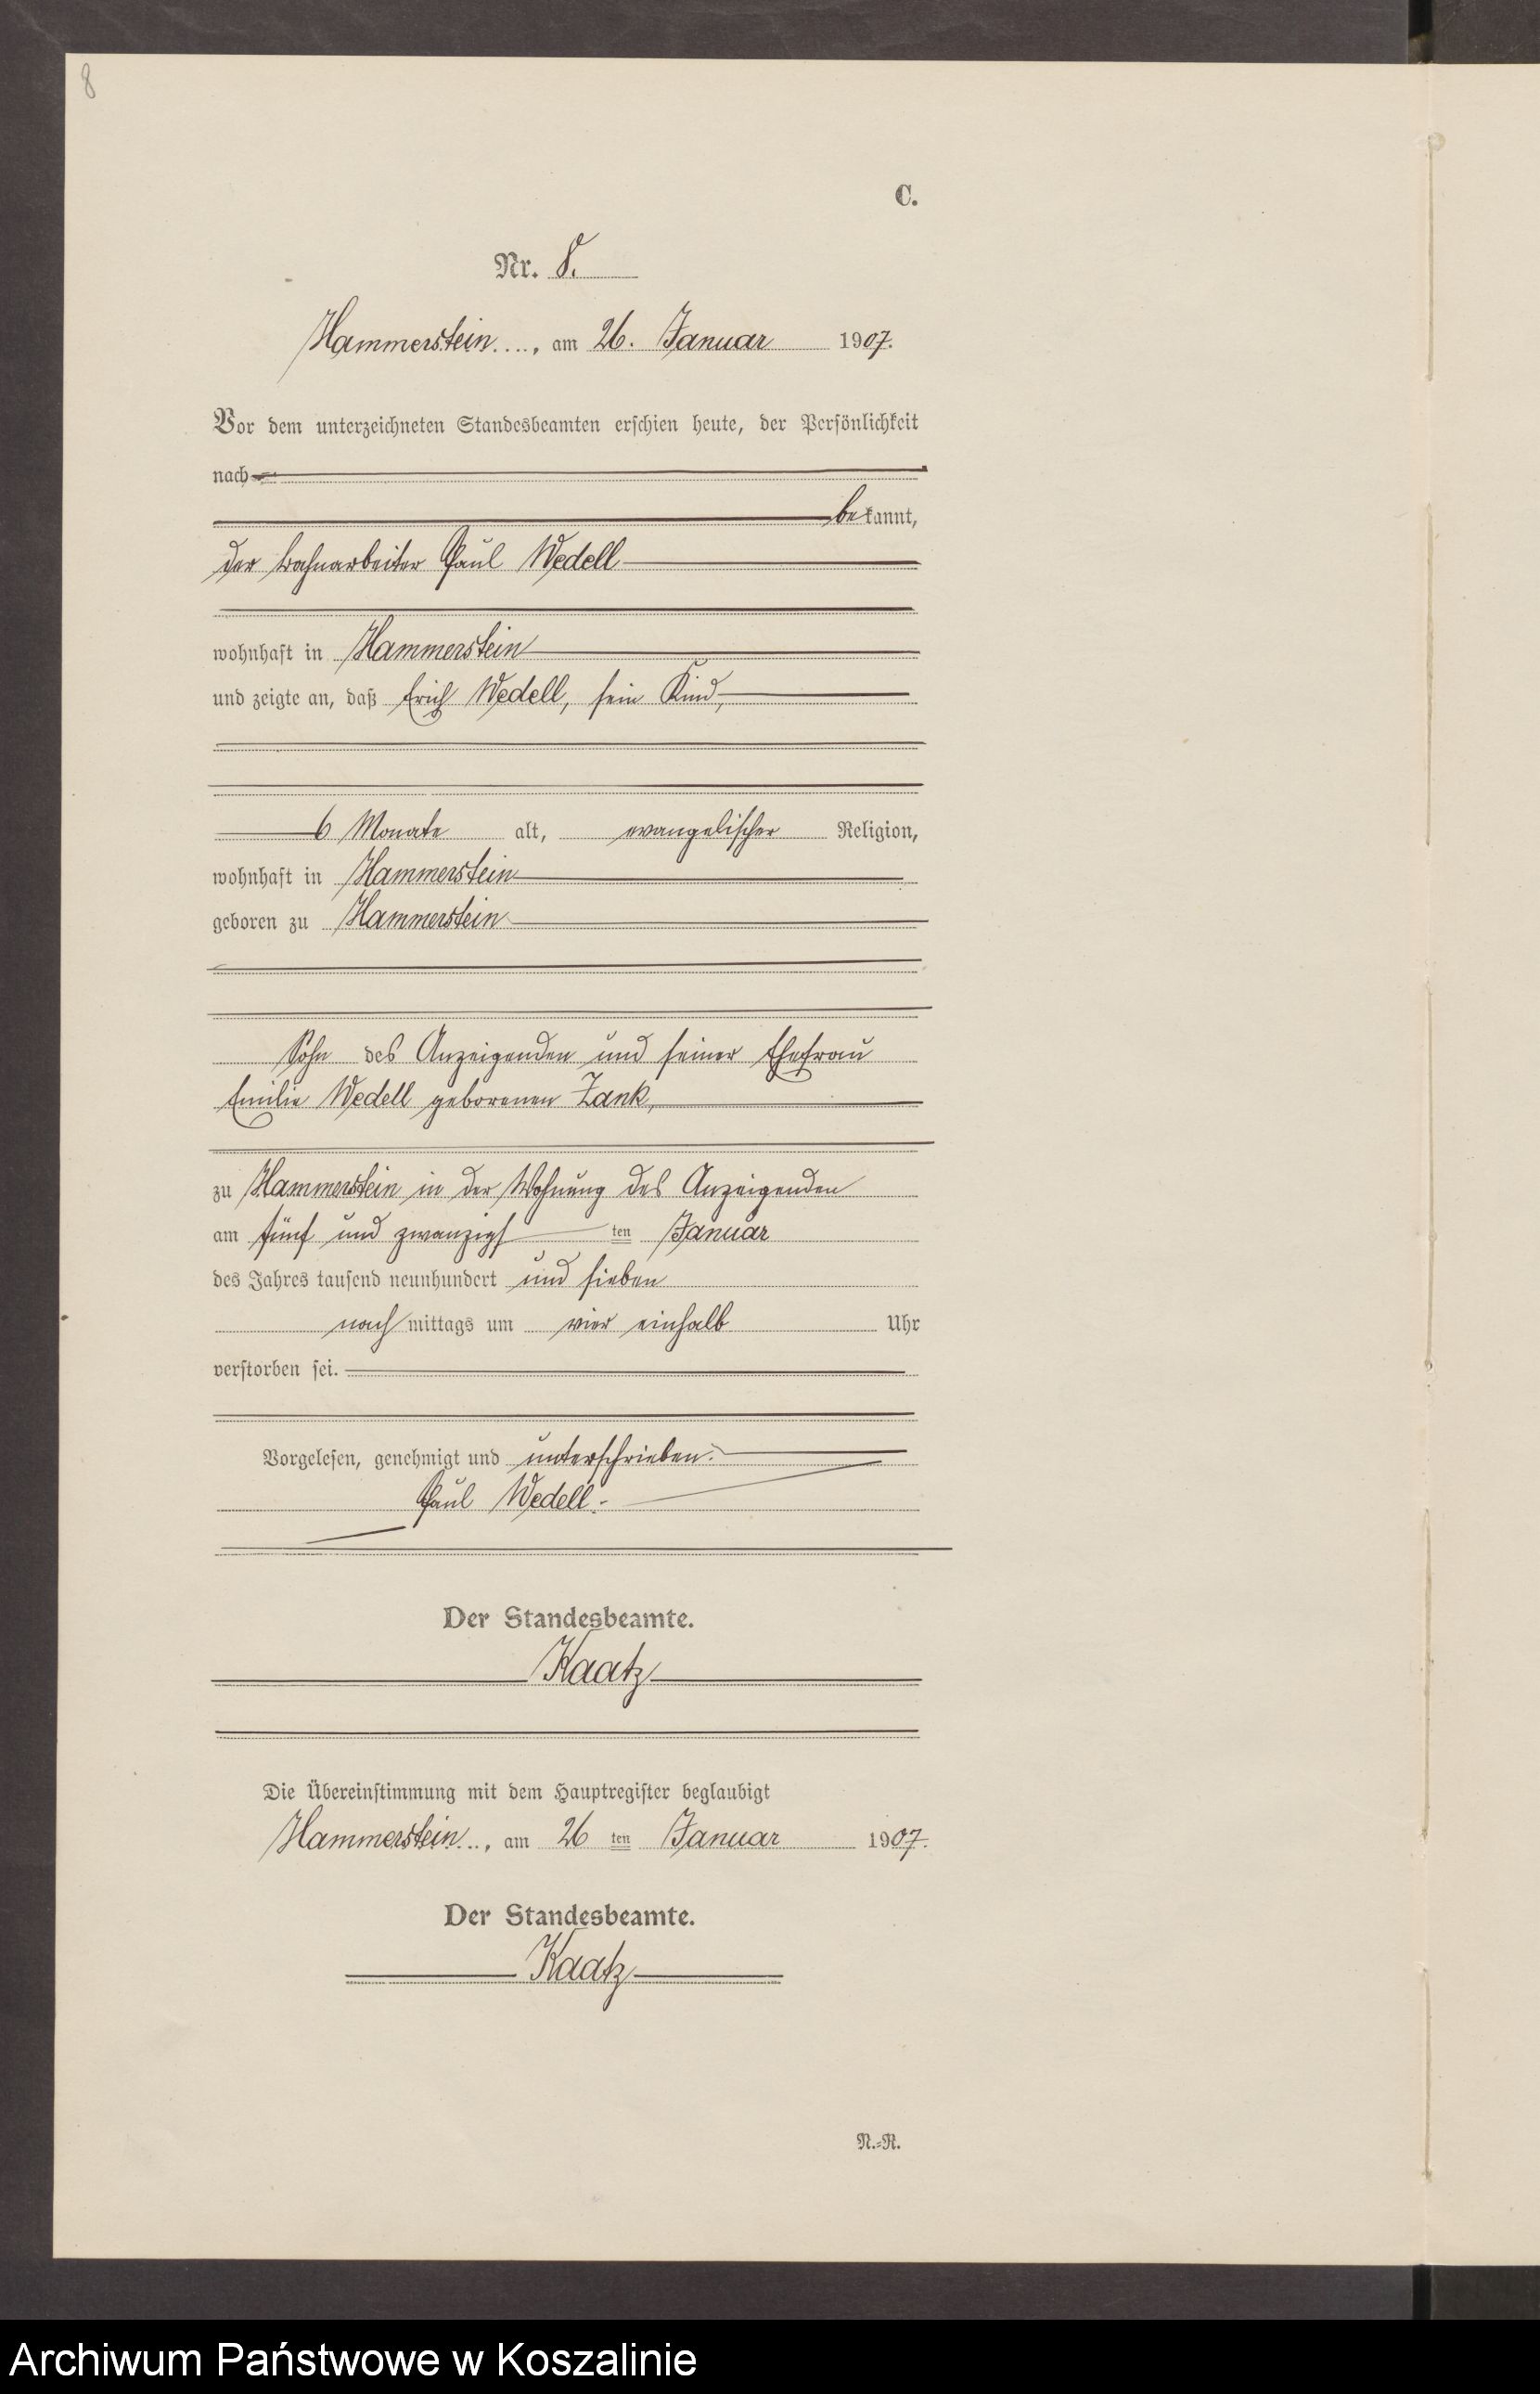 8
C.
Nr. 8.
Hammerstein...., am 26. Januar 1907.
Vor dem unterzeichneten Standesbeamten erschien heute, der Persönlichkeit
nach
bekannt,
der Bahnarbeiter Paul Wedell
wohnhaft in Hammerstein
und zeigte an, daß Erich Wedell, sein Kind,
6 Monate alt, evangelischer Religion,
wohnhaft in Hammerstein
geboren zu Hammerstein
Sohn des Anzeigenden und seiner Ehefrau
Emilie Wedell geborenen Zank,
zu Hammerstein in der Wohnung des Anzeigenden
am fünf und zwanzigsten Januar
des Jahres tausend neunhundert und sieben
nachmittags um vier einhalb Uhr
verstorben sei.
Vorgelesen, genehmigt und unterschrieben.
Paul Wedell.
Der Standesbeamte.
Kaatz
Die Übereinstimmung mit dem Hauptregister beglaubigt
Hammerstein..., am 26ten Januar 1907.
Der Standesbeamte.
Kaatz
N.=R.
Archiwum Państwowe w Koszalinie